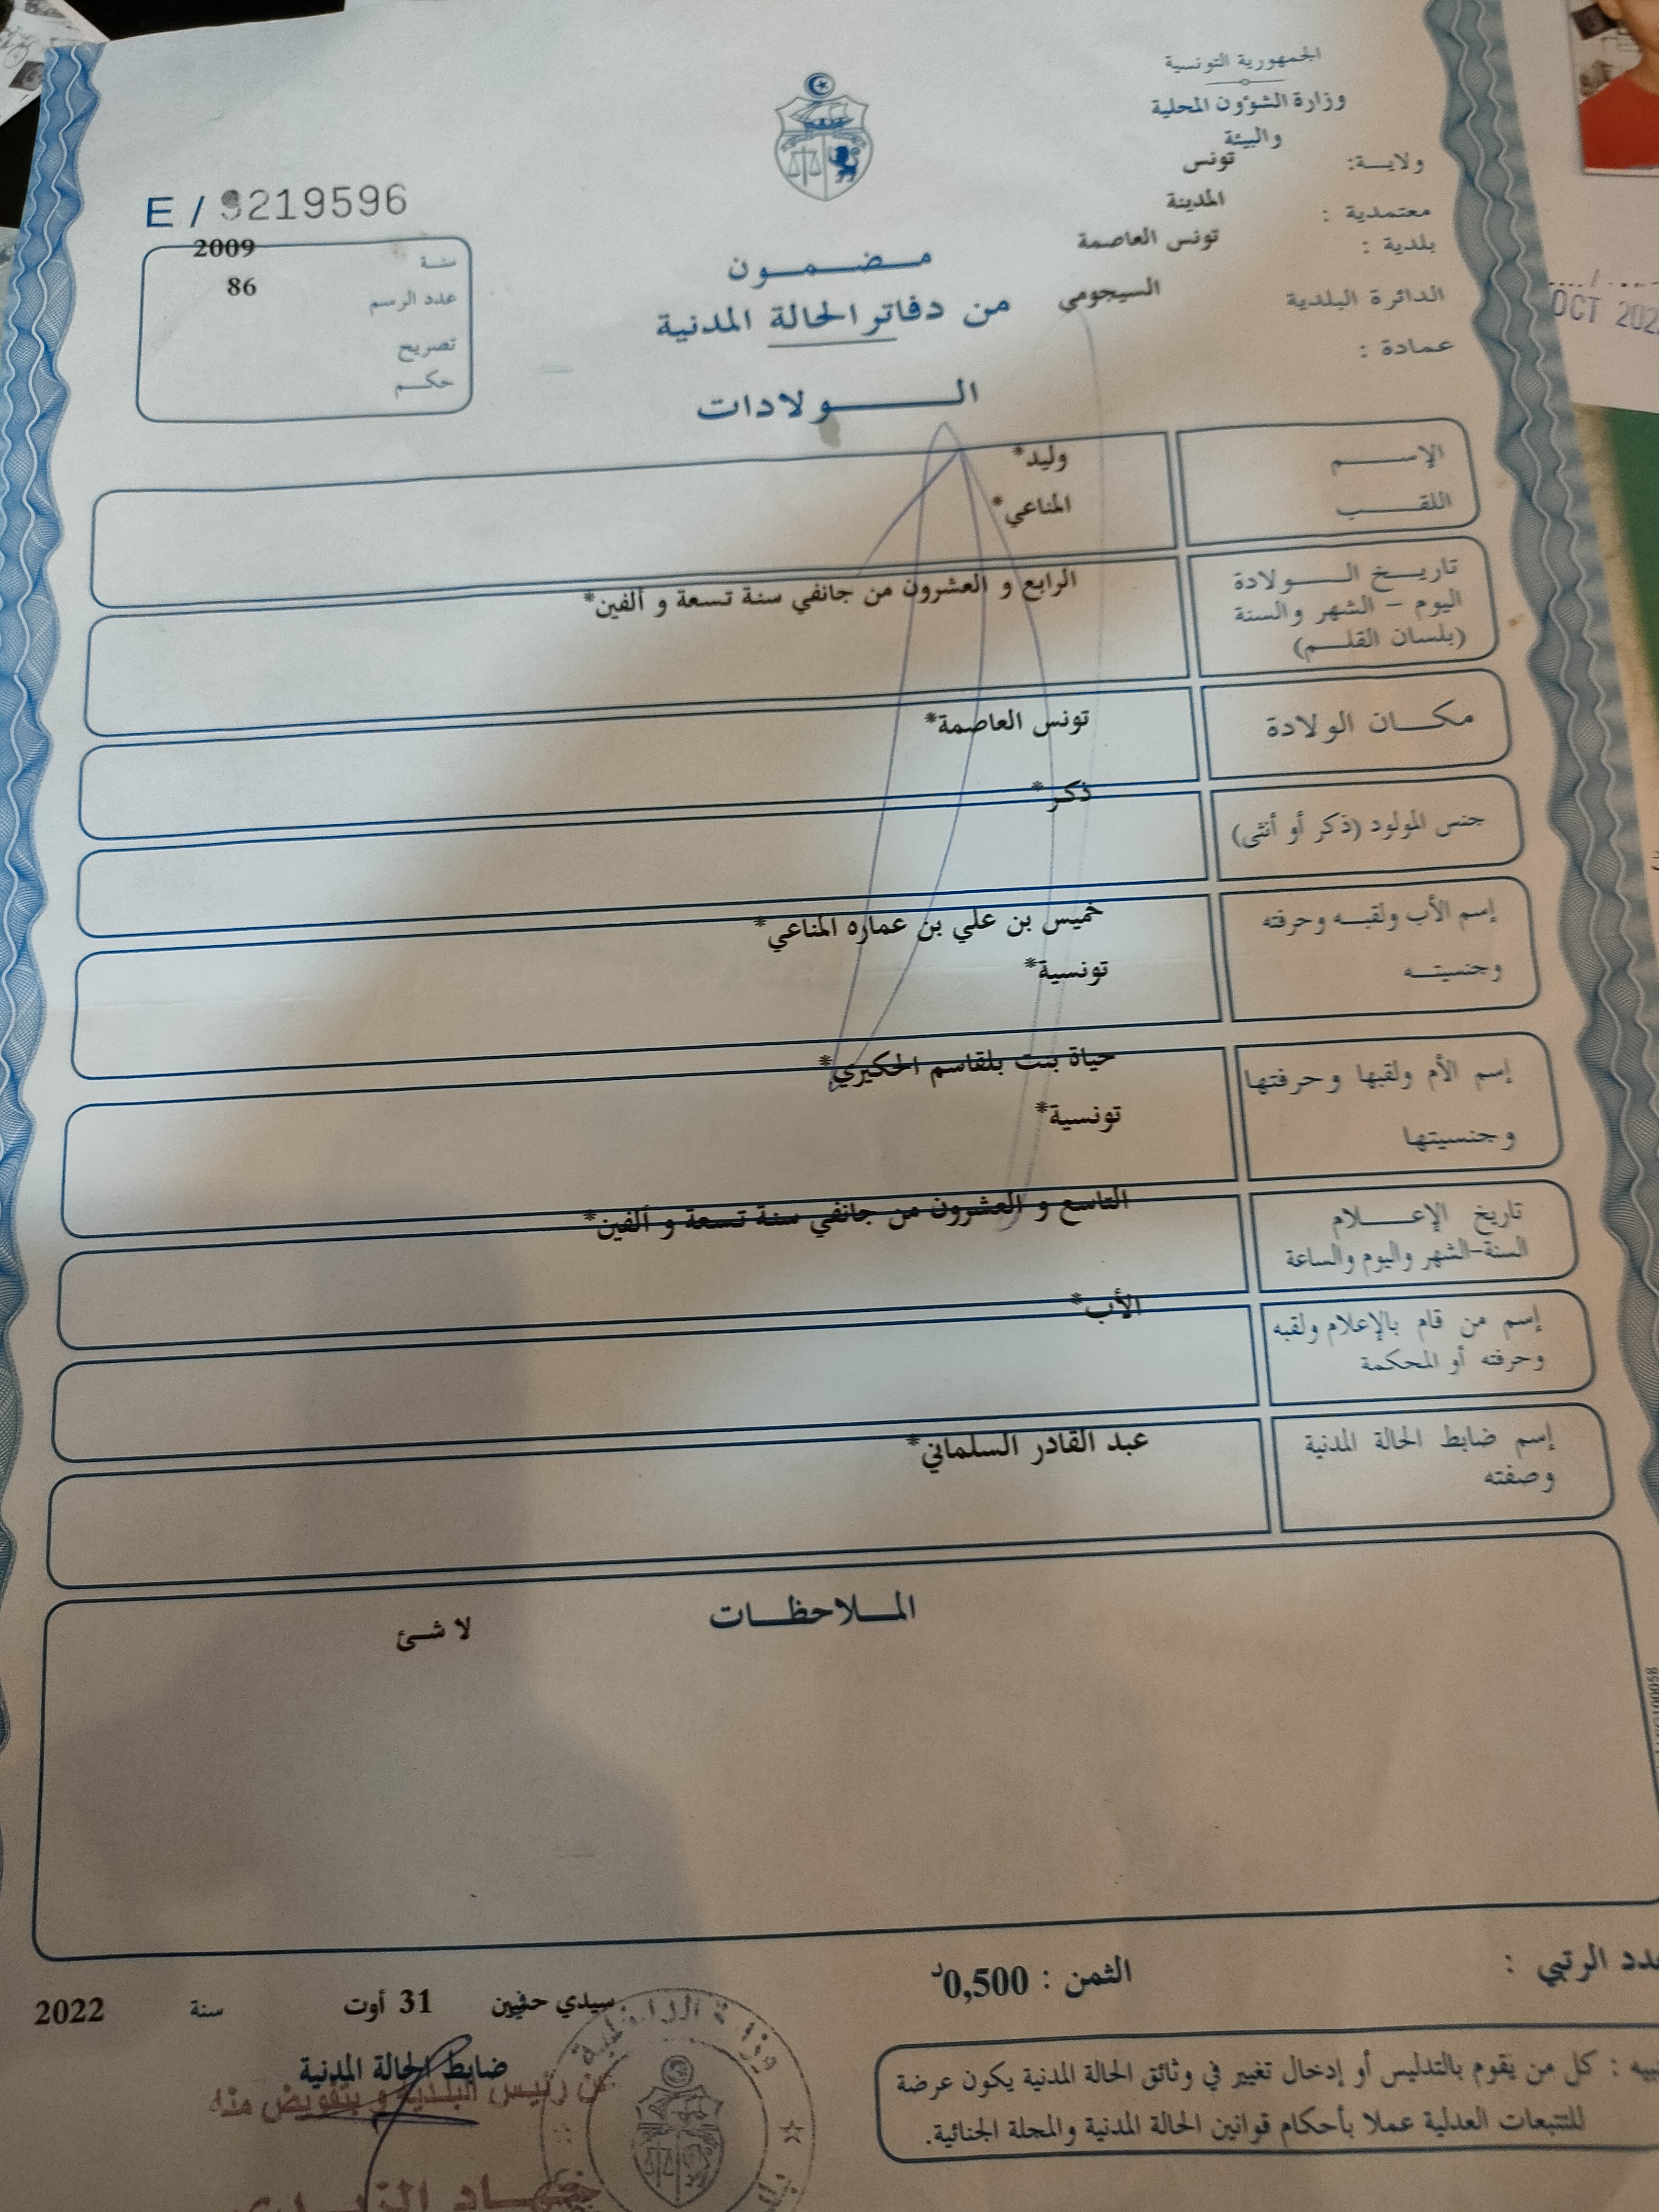 الجمهورية التونسية
وزارة الشؤون المحلية
والبيئة
ولايــة: تونس
معتمدية : المدينة
بلدية : تونس العاصمة
الدائرة البلدية السيجومي
عمادة :
E / 9219596
سنة 2009
عدد الرسم 86
تصريح
حكم
مضمون
من دفاتر الحالة المدنية
الولادات
الإسم وليد*
اللقب المناعي*
تاريخ الولادة
اليوم – الشهر والسنة
(بلسان القلم)
الرابع و العشرون من جانفي سنة تسعة و ألفين*
مكان الولادة تونس العاصمة*
جنس المولود (ذكر أو أنثى) ذكر*
إسم الأب ولقبه وحرفته خميس بن علي بن عماره المناعي*
وجنسيته تونسية*
إسم الأم ولقبها وحرفتها حياة بنت بلقاسم الحكيري*
وجنسيتها تونسية*
تاريخ الإعلام التاسع و العشرون من جانفي سنة تسعة و ألفين*
السنة-الشهر واليوم والساعة
إسم من قام بالإعلام ولقبه الأب*
وحرفته أو المحكمة
إسم ضابط الحالة المدنية عبد القادر السلماني*
وصفته
الملاحظات
لا شئ
الرتبي :
الثمن : 0,500د
سيدي حفيين 31 أوت سنة 2022
ضابط الحالة المدنية
عن رئيس البلدية و بتفويض منه
كل من يقوم بالتدليس أو إدخال تغيير في وثائق الحالة المدنية يكون عرضة
للتتبعات العدلية عملا بأحكام قوانين الحالة المدنية والمجلة الجنائية.
وزارة الداخلية
OCT 202